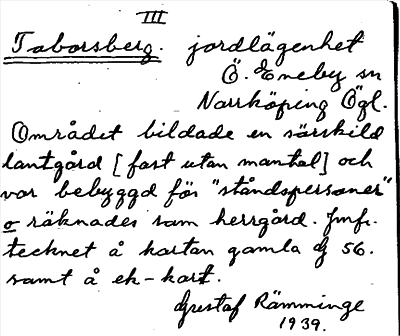 III
Taborsberg. jordlägenhet
Ö. Eneby sn
Norrköping Ögl.
Området bildade en särskild
lantgård [fast utan mantal] och
var bebyggd för "ståndspersoner"
o räknades som herrgård. Jmfr.
tecknet å kartan gamla 56.
samt å ek-kart.
Gustaf Rämminge
1939.